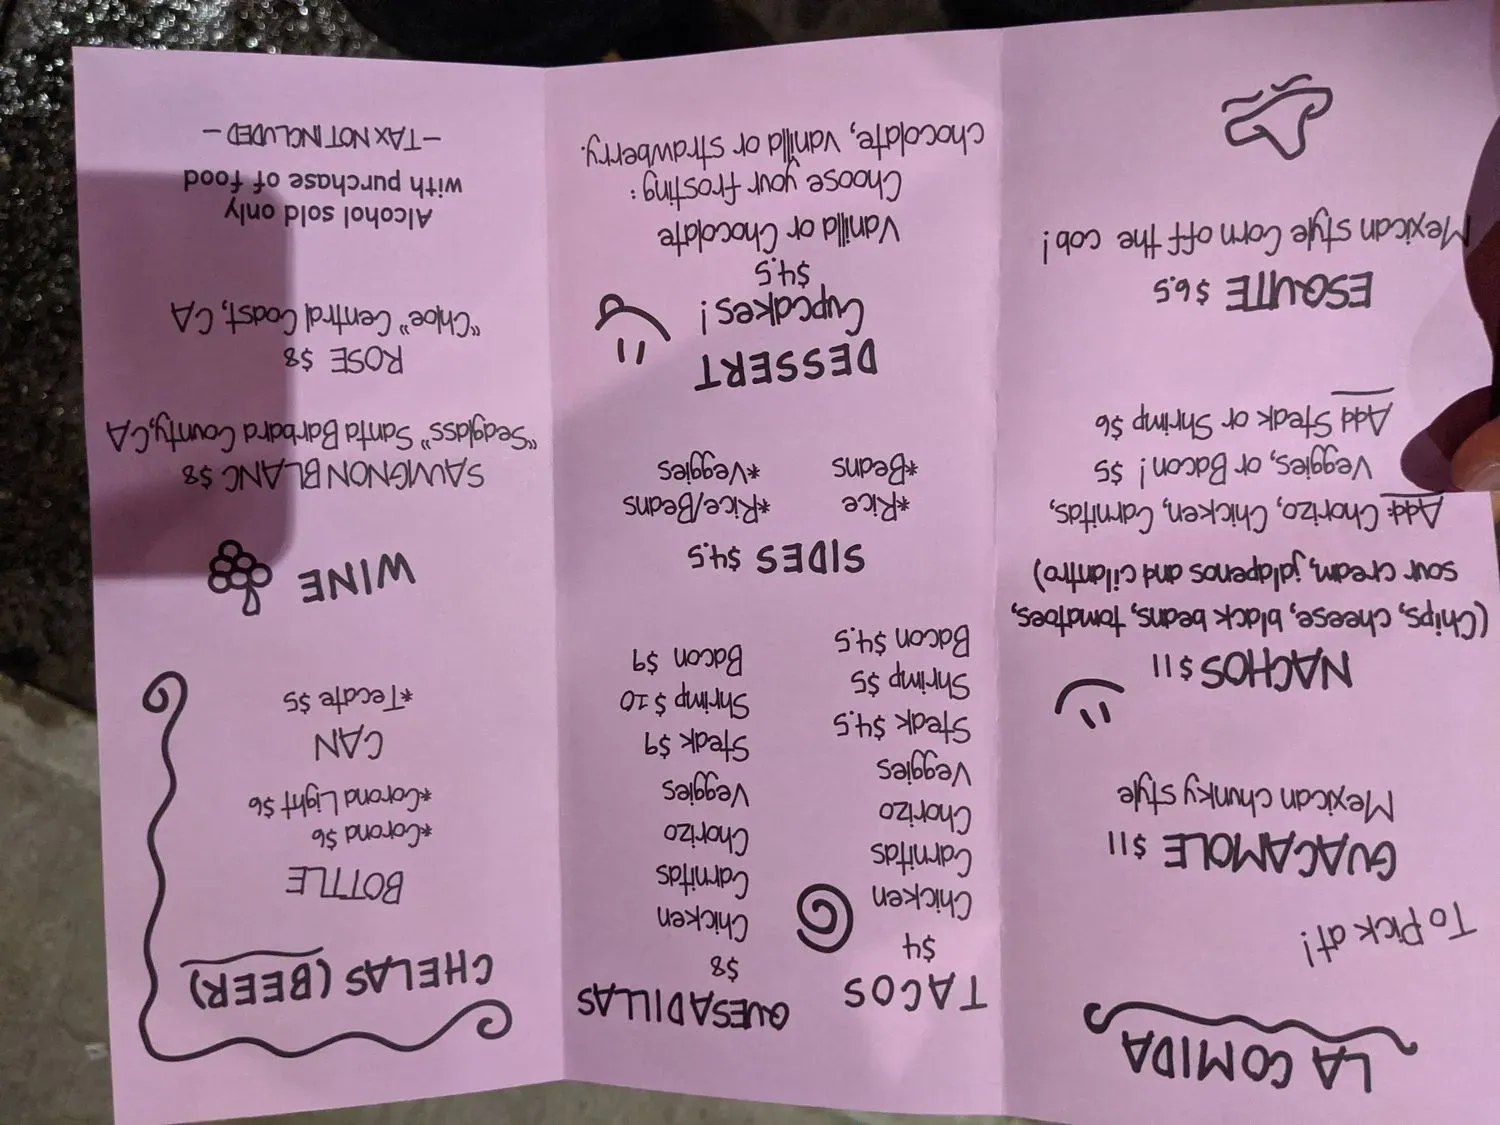 LA COMIDA
To Pick at!
GUACAMOLE $11
Mexican chunky style
NACHOS $11
(Chips, cheese, black beans, tomatoes,
sour cream, jalapenos and cilantro)
Add: Chorizo, Chicken, Carnitas,
Veggies, or Bacon! $5
Add Steak or Shrimp $6
ESQUITE $6.5
Mexican style Corn off the cob!
TACOS
$4
Chicken
Carnitas
Chorizo
Veggies
Steak $4.5
Shrimp $5
Bacon $4.5
QUESADILLAS
$8
Chicken
Carnitas
Chorizo
Veggies
Steak $9
Shrimp $10
Bacon $9
SIDES $4.5
*Rice *Rice/Beans
*Beans *Veggies
DESSERT
Cupcakes!
$4.5
Vanilla or Chocolate
Choose your frosting:
chocolate, vanilla or strawberry.
CHELAS (BEER)
BOTTLE
*Corona $6
*Corona Light $6
CAN
*Tecate $5
WINE
SAUVIGNON BLANC $8
"Seaglass" Santa Barbara County, CA
ROSE $8
"Chloe" Central Coast, CA
Alcohol sold only
with purchase of food
- TAX NOT INCLUDED -